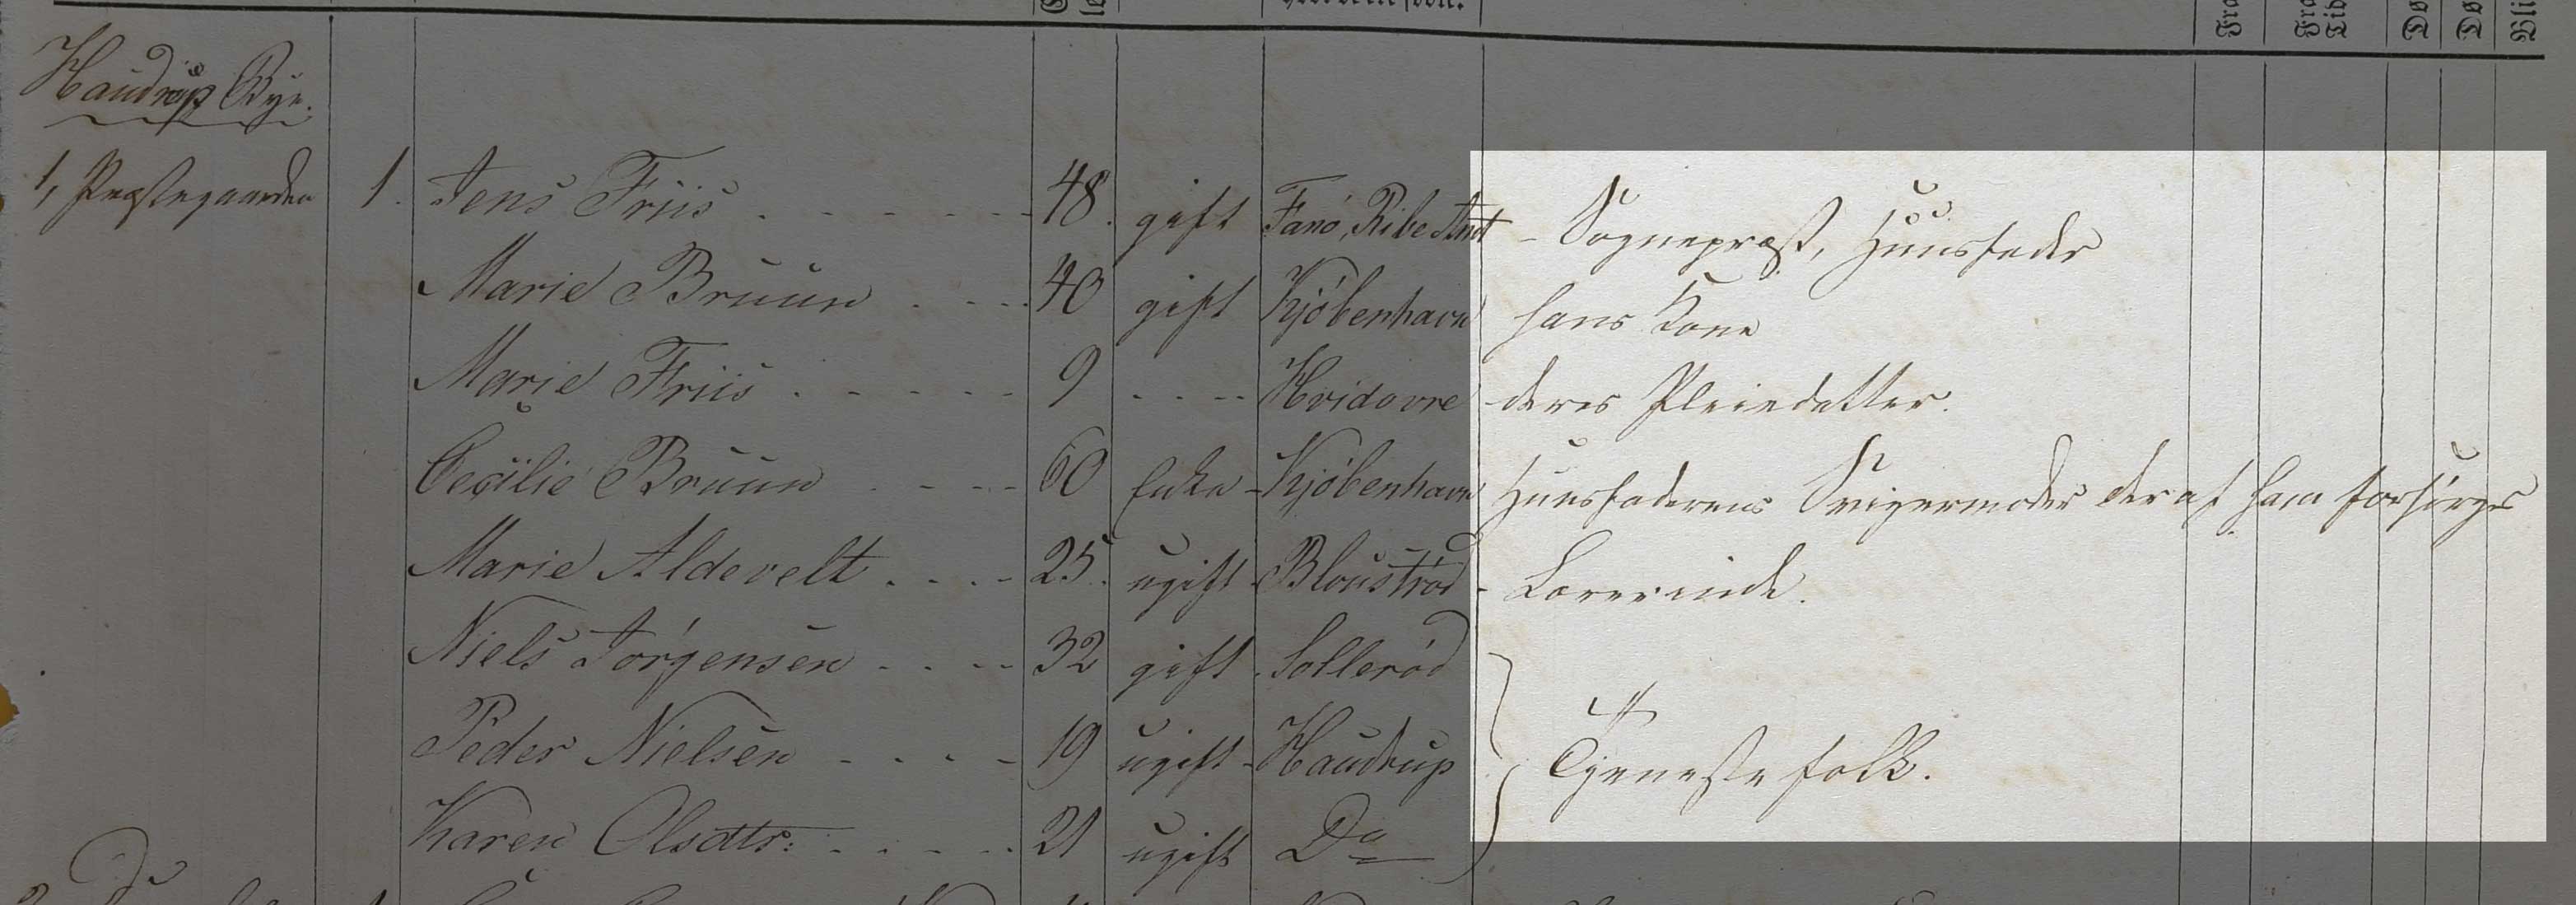 Haudrup Bye.
1, Præstegaarden 1. Jens Friis 48. gift Fanö, Ribe Amt - Sognepræst, Huusfader
Marie Bruun 40 gift Kjöbenhavn hans Kone
Marie Friis 9 Hvidovre deres Pleiedatter.
Cecilie Bruun 60 Enke Kjöbenhavn Huusfaderens Svigermoder der af ham forsörges
Marie Aldevelt 25. ugift Bloustrød - Lærerinde.
Niels Jörgensen 32 gift Sölleröd
Peder Nielsen 19 ugift Haudrup Tjenestefolk.
Karen Olsdtr: 21 ugift Do